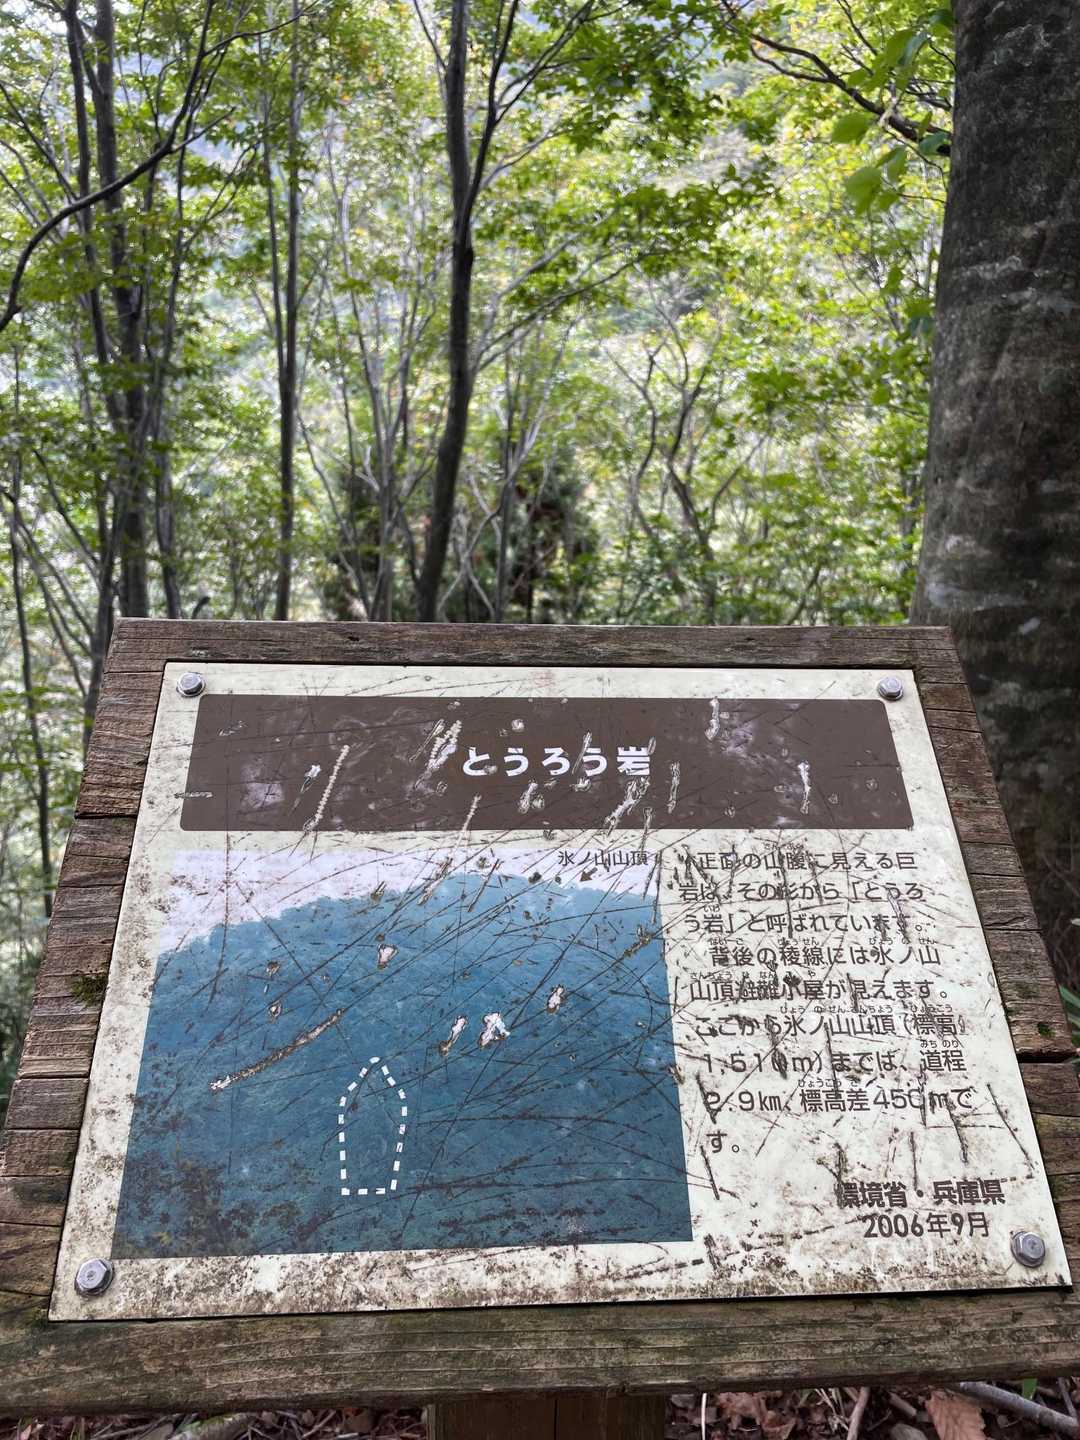 とうろう岩
氷ノ山山頂
正面の山腹に見える巨
岩は、その形から「とうろ
う岩」と呼ばれています。
背後の稜線には氷ノ山
山頂避難小屋が見えます。
ここから氷ノ山山頂（標高
1,510m）までは、道程
2.9km、標高差450mで
す。
環境省・兵庫県
2006年9月